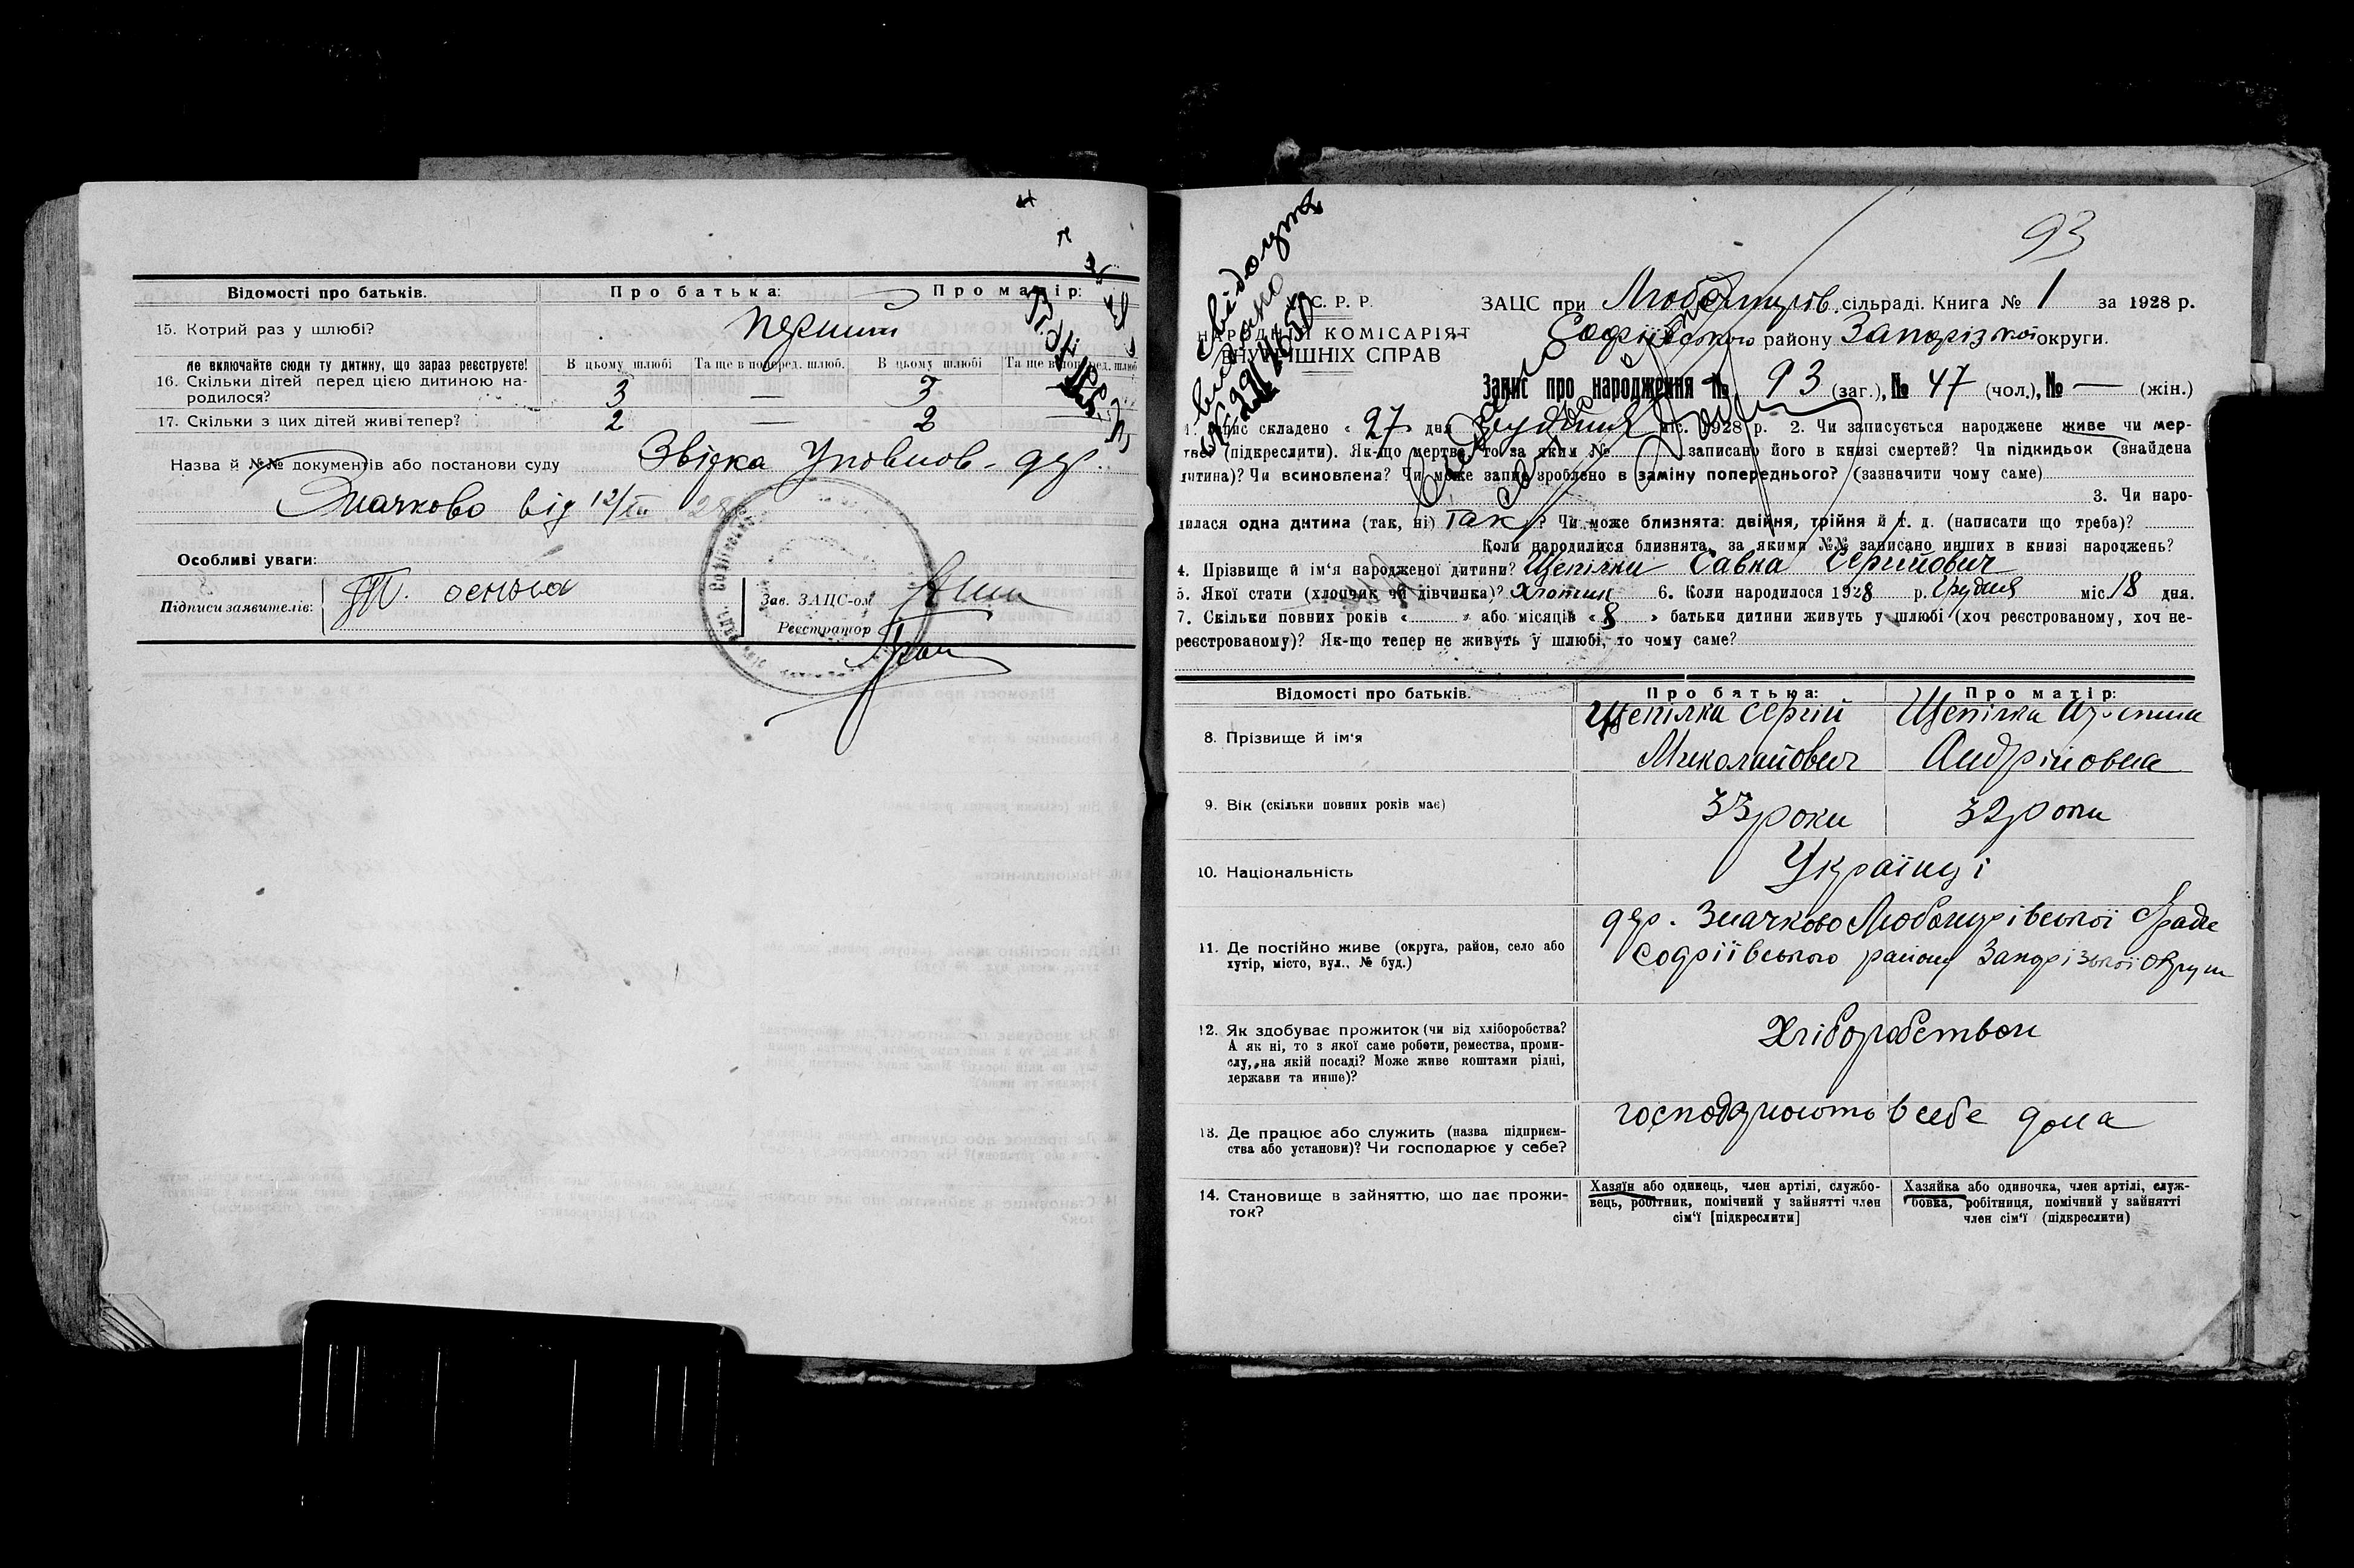 Відомості про батьків. Про батька: Про матір:
15. Котрий раз у шлюбі? перший
Не включайте сюди ту дитину, що зараз реєструєте! В цьому шлюбі Та ще в поперед. шлюб. В цьому шлюбі Та ще в поперед. шлюб
16. Скільки дітей перед цією дитиною на-
родилося? 3 — 3 —
17. Скільки з цих дітей живі тепер? 2 — 2 —
Назва й №№ документів або постанови суду Звідка Уповнов. дер.
Значково від 12/
Особливі уваги:
Підписи заявителів:
Зав. ЗАЦС-ом
Реєстратор
93
С. Р. Р.
НАРОДНІЙ КОМІСАРІЯТ
ВНУТРІШНІХ СПРАВ
ЗАЦС при Любомирів. сільраді. Книга № 1 за 1928 р.
Софіївського району Запорізької округи.
Запис про народження № 93 (заг.), № 47 (чол.), № — (жін.)
1. Запис складено « 27 » дня Грудня міс. 1928 р. 2. Чи записується народжене живе чи мер-
тве? (підкреслити). Як-що мертве, то за яким № записано його в книзі смертей? Чи підкидьок (знайдена
дитина)? Чи всиновлена? Чи може запис зроблено в заміну попереднього? (зазначити чому саме)
3. Чи наро-
дилася одна дитина (так, ні) Так? Чи може близнята: двійня, трійня й т. д. (написати що треба)?
Коли народилися близнята, за якими №№ записано инших в книзі народжень?
4. Прізвище й ім'я народженої дитини? Щепілки Савка Сергійович
5. Якої стати (хлопчик чи дівчинка)? Хлопчик 6. Коли народилося 1928 р. Грудня міс. 18 дня.
7. Скільки повних років « » або місяців « 8 » батьки дитини живуть у шлюбі (хоч реєстрованому, хоч не-
реєстрованому)? Як-що тепер не живуть у шлюбі, то чому саме?
Відомості про батьків. Про батька: Про матір:
Щепілка Сергій Щепілка
8. Прізвище й ім'я
Миколайович Андрійовна
9. Вік (скільки повних років має) 33 роки 32 роки
10. Національність Українці
дер. Значково Любомирівської С/ради
11. Де постійно живе (округа, район, село або
хутір, місто, вул., № буд.) Софіївського району Запорізької округи
12. Як здобуває прожиток (чи від хліборобства?
А як ні, то з якої саме роботи, ремества, проми-
слу, на якій посаді? Може живе коштами рідні,
держави та инше)? Хліборобством
13. Де працює або служить (назва підприєм-
ства або установи)? Чи господарює у себе? господарюють в себе дома
14. Становище в зайняттю, що дає прожи-
ток?
Хазяїн або одинець, член артілі, службо-
вець, робітник, помічний у зайнятті член
сім'ї [підкреслити]
Хазяйка або одиночка, член артілі, служ-
бовка, робітниця, помічний у зайнятті
член сім'ї (підкреслити)